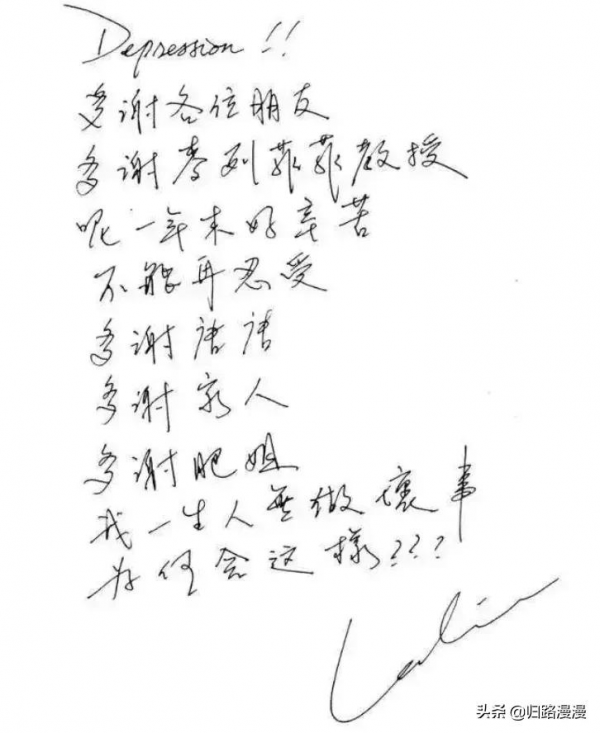 Depression!!
多谢各位朋友
多谢李列菲菲教授
呢一年来好辛苦
不能再忍受
多谢唐唐
多谢家人
多谢肥姐
我一生人無做壞事
为何会这樣???
Leslie
头条 @归路漫漫